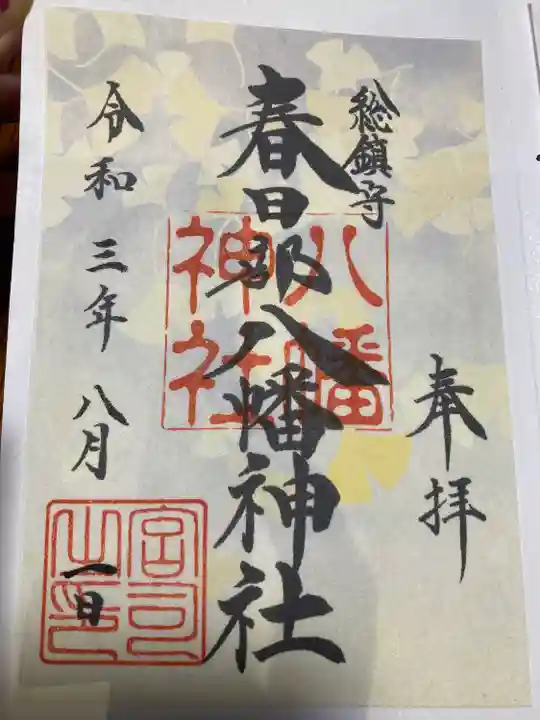 奉拝
総鎮守
春日部八幡神社
八幡神社
令和三年八月
一日
宮司之印